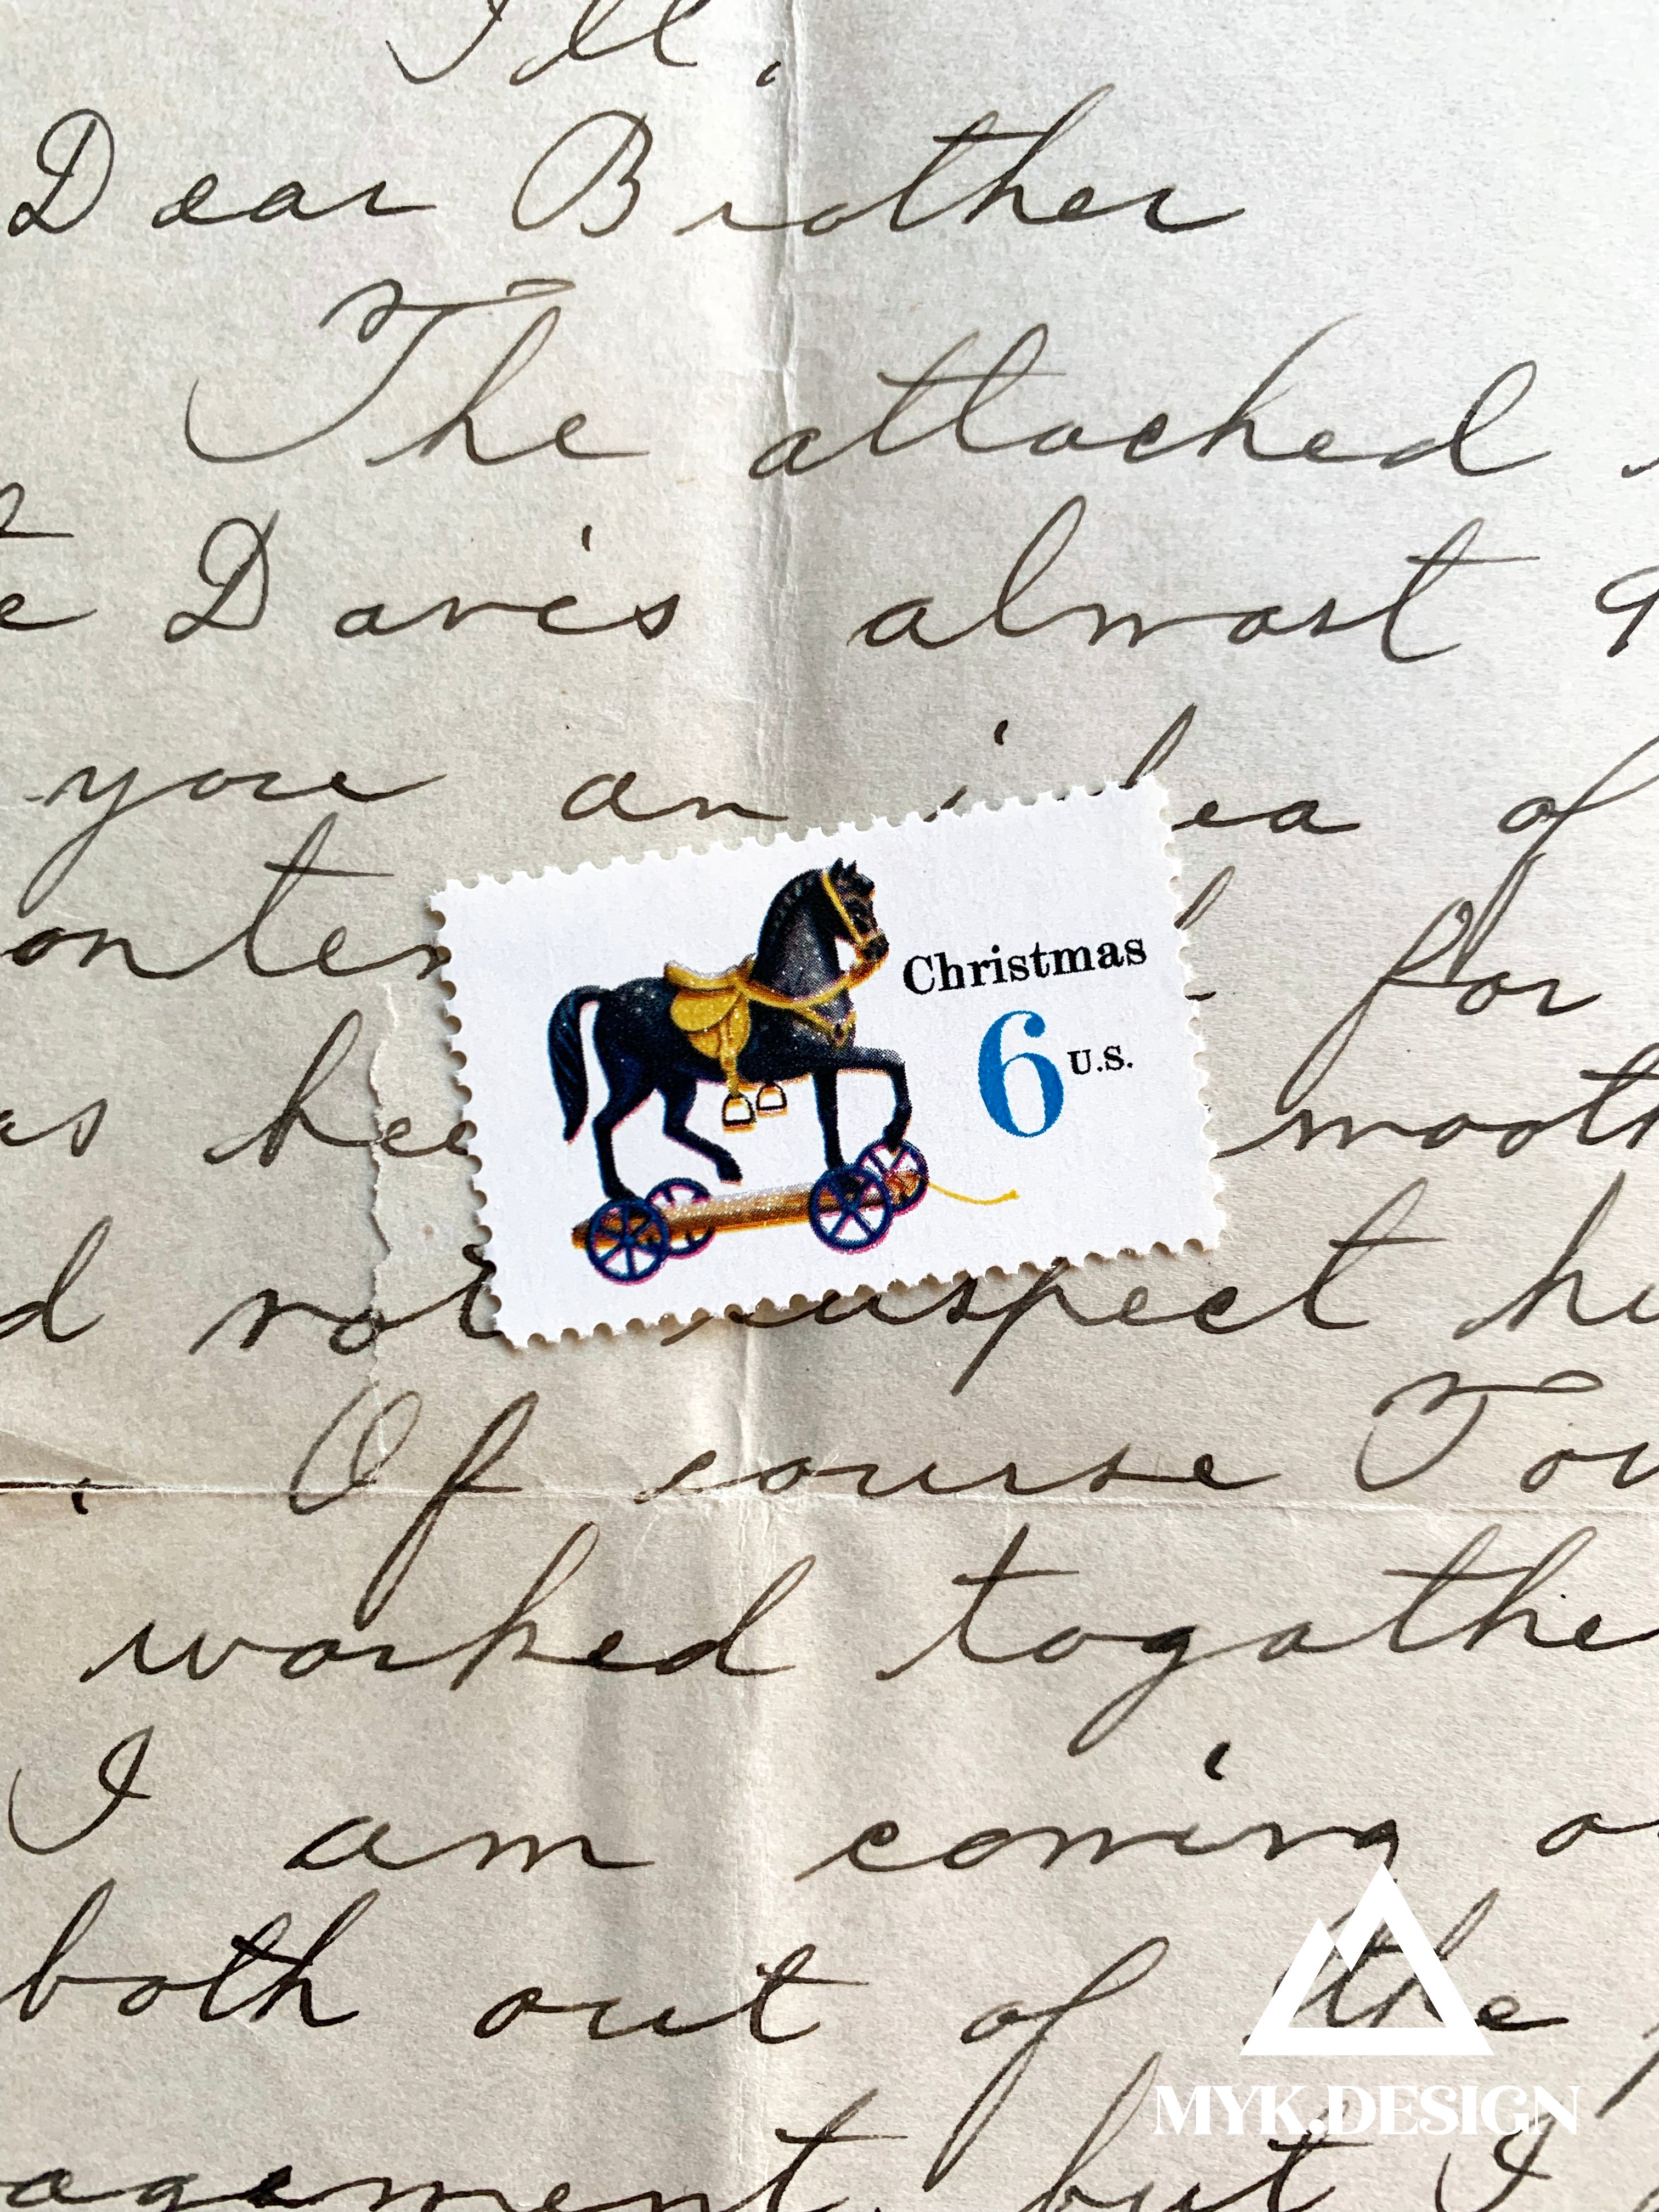 Ill.
Dear Brother
The attached
Davis almost
you an idea of
for
as
d not suspect
. Of course
worked togathe
I am coming
both out of the
agement, but I
Christmas
6 U.S.
MYK.DESIGN